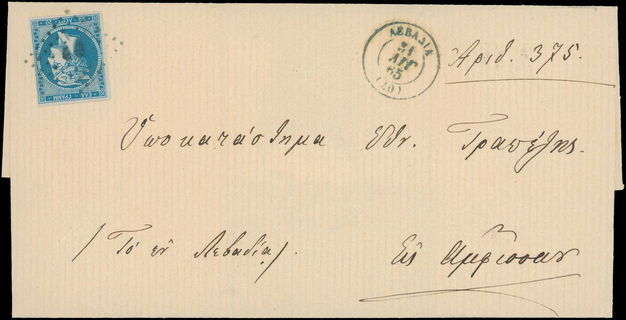 ΛΕΒΑΔΙΑ
ΑΥΓ
65
(40)
Ἀριθ. 375.
Ὑποκατάστημα Ἐθν. Τραπέζης.
/Τὸ ἐν Λεβαδίᾳ/.
Εἰς Ἄμφισσαν